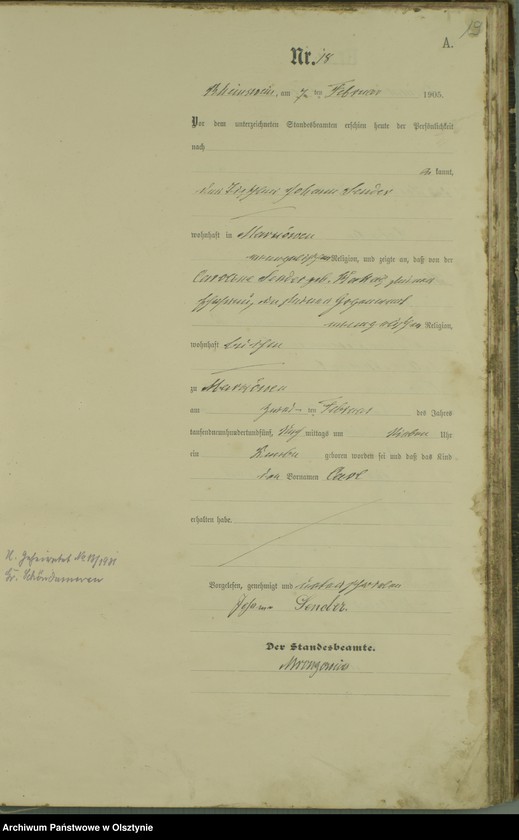 13
A.
Nr. 18
Rheinswein, am 7 ten Februar 1905.
Vor dem unterzeichneten Standesbeamten erschien heute der Persönlichkeit
nach
kannt,
Johann Sender
wohnhaft in
evangelischer Religion, und zeigte an, daß von der
Caroline Sender geb. seiner
Ehefrau,
evangelischer Religion,
wohnhaft bei ihm
zu
am zwei ten Februar des Jahres
tausendneunhundertundfünf, Nach mittags um sieben Uhr
ein Knabe geboren worden sei und daß das Kind
den Vornamen Carl
erhalten habe.
Vorgelesen, genehmigt und unterschrieben
Johann Sender
Der Standesbeamte.
Mrongowius
K. Geheiratet No
Gr. Schöndamerau
Archiwum Państwowe w Olsztynie